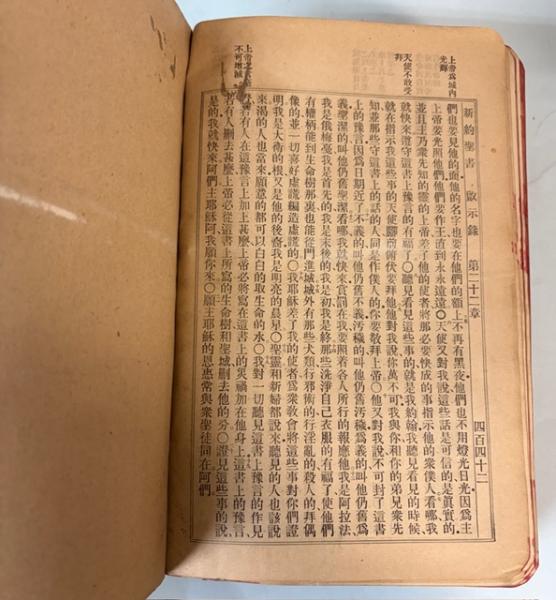 上帝爲城內
光輝
天使不敢受
拜
上帝之言
不可增減
新約聖書 啟示錄 第二十二章 四百四十二
們也要見他的面他的名字也要在他們的額上不再有黑夜他們也不用燈光日光因爲主
上帝要光照他們他們要作王直到永永遠遠〇天使又對我說這些話是可信的是眞實的
並且主乃衆先知的靈的上帝差了他的使者將那必要快成的事指示他的衆僕人看哪我
就快來遵守這書上豫言的有福了〇聽見看見這些事的就是我約翰我聽見看見的時候
就在指示我這些事的天使腳前俯伏要拜他他對我說你萬不可我與你和你的弟兄衆先
知並那些守這書上的話的人同是作僕人的你要敬拜上帝〇他又對我說不可封了這書
上的豫言因爲日期近了不義的叫他仍舊不義汚穢的叫他仍舊汚穢爲義的叫他仍舊爲
義聖潔的叫他仍舊聖潔看哪我就快來賞罰在我要照着各人所行的報應他我是阿拉法
我是俄梅戞我是首先的我是末後的我是初我是終那些洗淨自己衣服的有福了使他們
有權柄能到生命樹那裏也能從門進城城外有那些犬類行邪術的行淫亂的殺人的拜偶
像的並一切喜好虛謊編造虛謊的〇我耶穌差了我的使者爲衆教會將這些事對你們證
明我是大衛的根又是他的後裔我是明亮的晨星〇聖靈和新婦都說來聽見的人也該說
來渴的人也當來願意的都可以白白的取生命的水〇我對一切聽見這書上豫言的作見
若有人在這豫言上加上甚麼上帝必將寫在這書上的災禍加在他身上這書上的豫言
若有人刪去甚麼上帝必從這書上所寫的生命樹和聖城刪去他的分〇證見這些事的說
是的我就快來阿們主耶穌阿我願你來〇願主耶穌的恩惠常與衆聖徒同在阿們